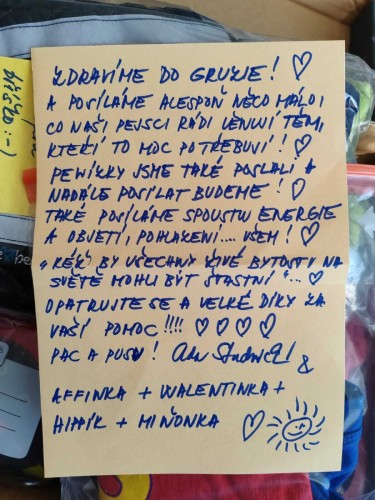 ZDRAVÍME DO GRUZIE! ♡
A POSÍLÁME ALESPOŇ NĚCO MÁLO,
CO NAŠI PEJSCI RÁDI VĚNUJÍ TĚM,
KTEŘÍ TO MOC POTŘEBUJÍ! ♡
PENÍZKY JSME TAKÉ POSLALI A
NADÁLE POSÍLAT BUDEME! ♡
TAKÉ POSÍLÁME SPOUSTU ENERGIE
A OBJETÍ, POHLAZENÍ.... VŠEM! ♡
"KÉŽ BY VŠECHNY ŽIVÉ BYTOSTI NA
SVĚTĚ MOHLI BÝT ŠŤASTNÍ"... ♡
OPATRUJTE SE A VELKÉ DÍKY ZA
VAŠI POMOC!!!! ♡ ♡ ♡ ♡
PAC A PUSU! &
AFFINKA + WALENTINKA +
HIPPÍK + MIŇONKA